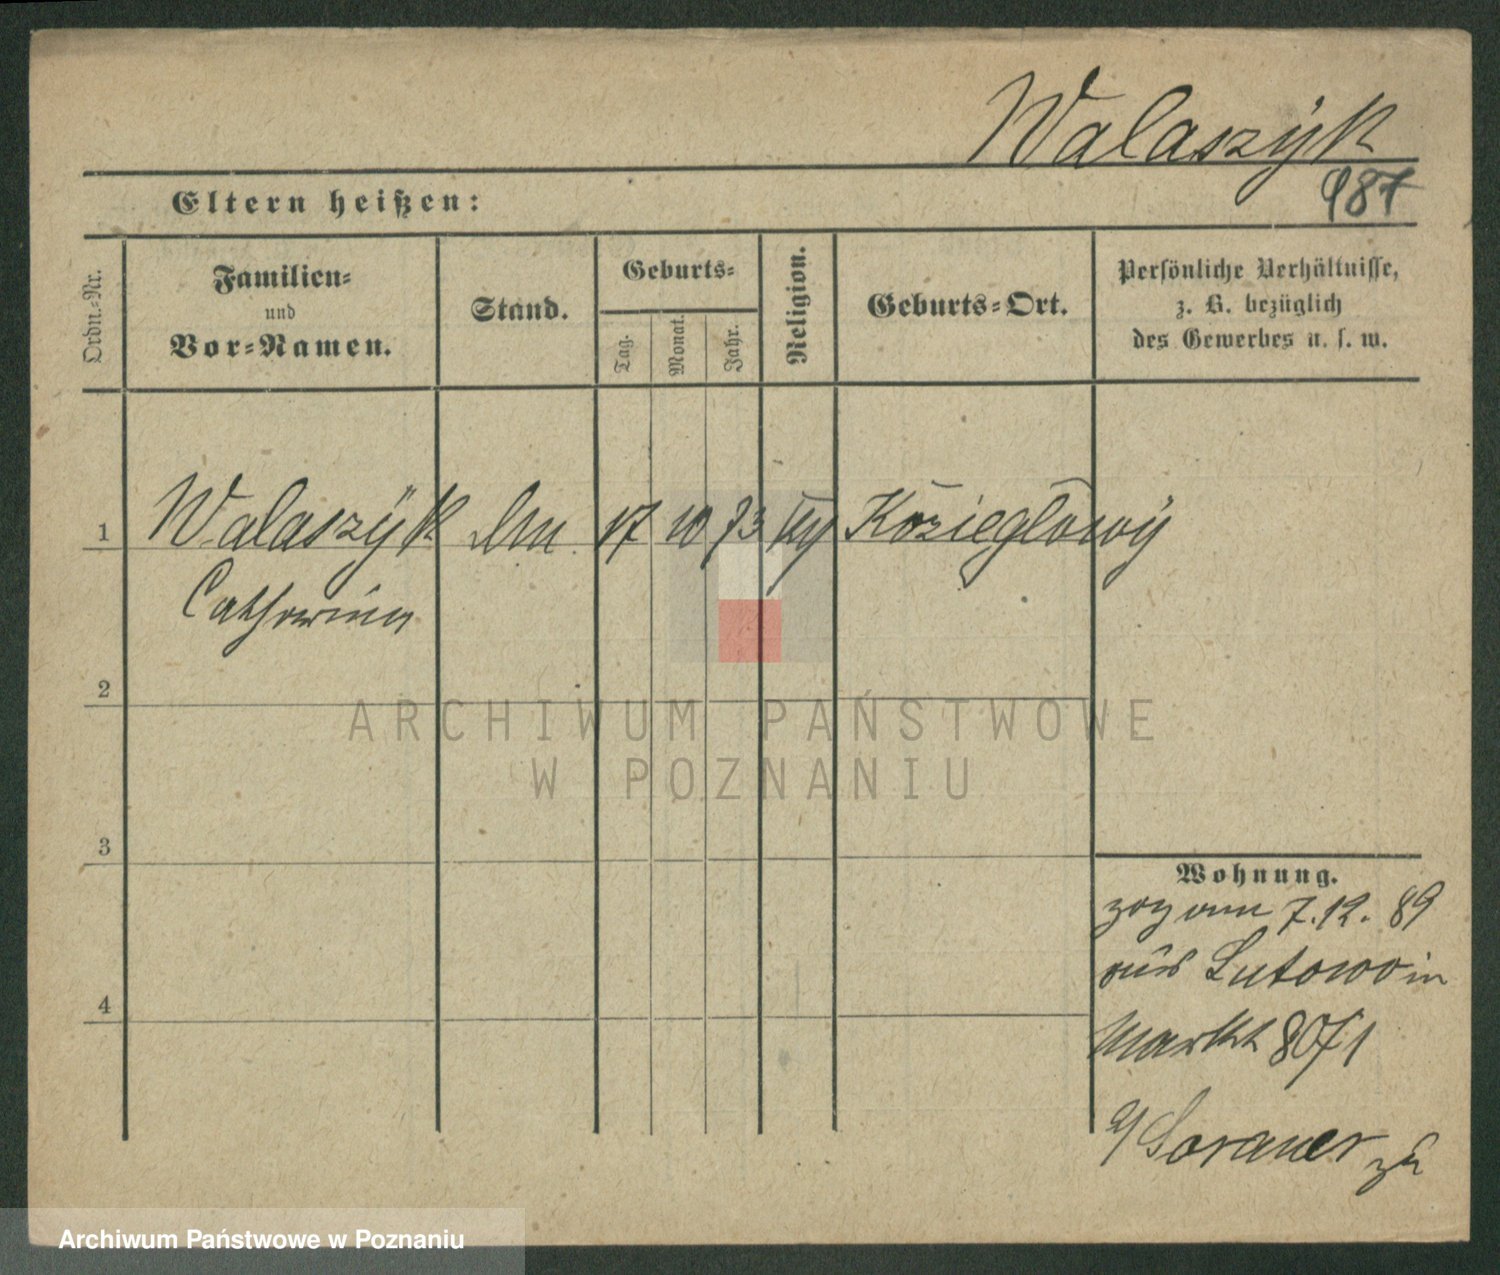 Walaszÿk
987
Eltern heißen:
Ordn.-Nr.
Familien-
und
Vor-Namen.
Stand.
Geburts-
Tag.
Monat.
Jahr.
Religion.
Geburts-Ort.
Persönliche Verhältnisse,
z. B. bezüglich
des Gewerbes u. s. w.
1 Walaszÿk 17 10 73 Koziegłowÿ
Catharina
2
3
4
Wohnung.
zog am 7.12. 89
aus Lutowo in
Markt 80/1
Soraner zu
ARCHIWUM PAŃSTWOWE
W POZNANIU
Archiwum Państwowe w Poznaniu